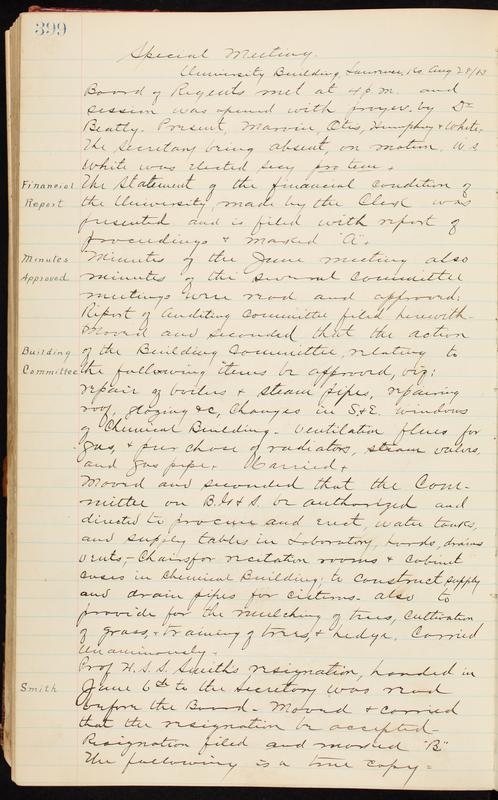 399
Special Meeting.
University Building, Lawrence, Ks. Aug 28/83
Board of Regents met at 4 p.m. and
session was opened with prayer by Dr
Beatty. Present, Marvin, Otis, Humphrey & White.
The secretary being absent, on motion. W.S.
White was elected secy protem.
Financial The Statement of the financial condition of
Report the University made by the Clerk was
presented and is filed with report of
proceedings & marked "A".
Minutes Minutes of the June meeting also
Approved minutes of the several committee
meetings were read and approved.
Report of Auditing Committee filed herewith.
Moved and seconded that the action
Building of the Building Committee, relating to
Committee the following items be approved, viz:
repair of boilers & steam pipes, repairing
roof, glazing &c, Changes in S&E. windows
of Chemical Building - ventilation flues for
gas, & purchase of radiators, steam valves,
and gas pipe. Carried.
Moved and seconded that the Com-
mittee on B. G. & S. be authorized and
directed to procure and erect, water tanks,
and supply tables in Laboratory, hoods, drains
vents, - Chairs for recitation rooms & cabinet
cases in Chemical Building; to construct supply
and drain pipes for cisterns. also to
provide for the mulching of trees, cultivation
of grass, training of trees, & hedge. Carried
unanimously.
Prof H.S.S. Smith's resignation, handed in
Smith June 6th to the Secretary was read
before the Board - Moved & carried
that the resignation be accepted -
Resignation filed and marked "B"
The following is a true copy =